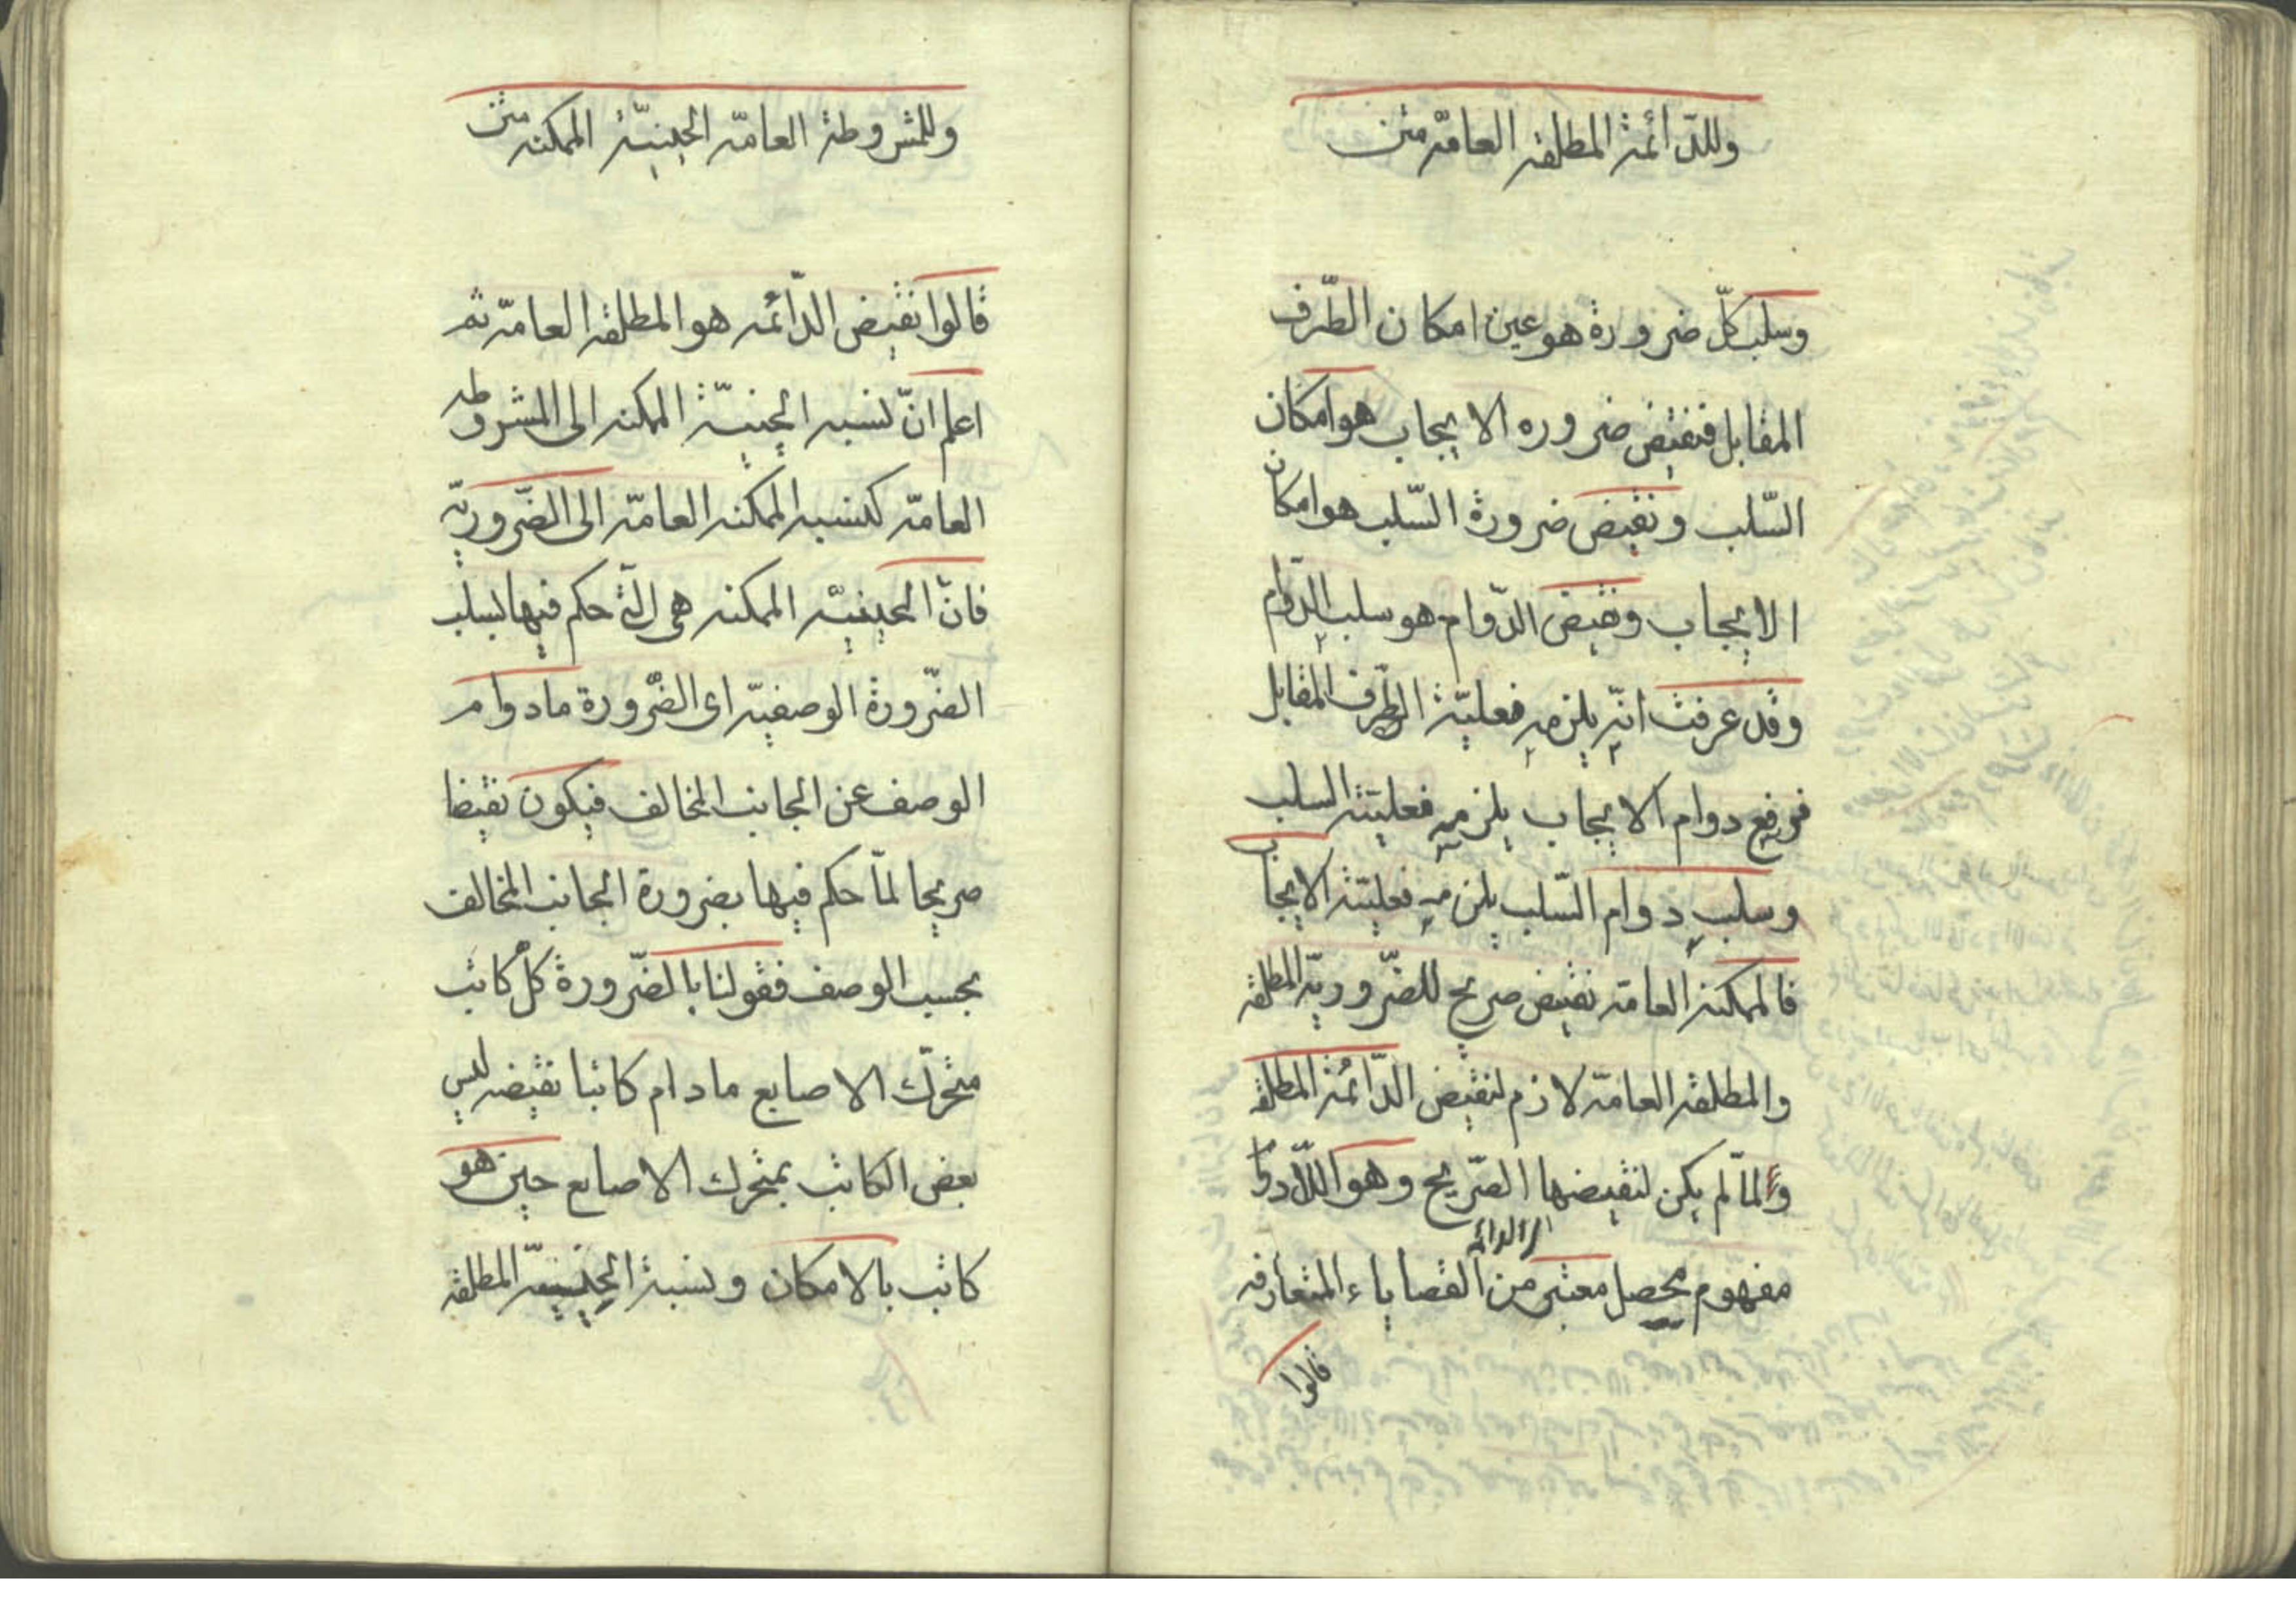 وللدّائمة المطلقة العامّة متن
وسلب كلّ ضرورة هو عين امكان الطّرف
المقابل فنقيض ضرورة الايجاب هو امكان
السّلب ونقيض ضرورة السّلب هو امكان
الايجاب ونقيض الدّوام هو سلب الدّوام
وقد عرفت انّه يلزمه فعليّة الطّرف المقابل
فرفع دوام الايجاب يلزمه فعليّة السلب
وسلب دوام السّلب يلزمه فعليّة الايجاب
فالممكنة العامّة نقيض صريح للضّروريّة المطلقة
والمطلقة العامّة لازم لنقيض الدّائمة المطلقة
ولمّا لم يكن لنقيضها الصّريح وهو اللّادوام
مفهوم محصل معتبر من القضاياء المتعارفة
قالوا
وللمشروطة العامّة الحينيّة الممكنة متن
قالوا نقيض الدّائمة هو المطلقة العامّة ثم
اعلم انّ نسبة الحينيّة الممكنة الى المشروطة
العامّة كنسبة الممكنة العامّة الى الضّروريّة
فانّ الحينيّة الممكنة هى الّتى حكم فيها بسلب
الضّرورة الوصفيّة اى الضّرورة مادوام
الوصف عن الجانب المخالف فيكون نقيضا
صريحا لمّا حكم فيها بضرورة الجانب المخالف
بحسب الوصف فقولنا بالضّرورة كلّ كاتب
متحرّك الاصابع مادام كاتبا نقيضه ليس
بعض الكاتب بمتحرك الاصابع حين هو
كاتب بالامكان ونسبة الحينيّة المطلقة